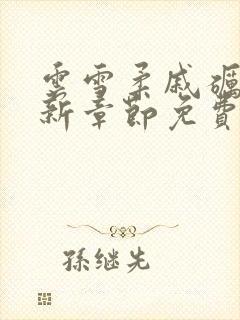 云雪柔戚礪
新章節免費
孫继先